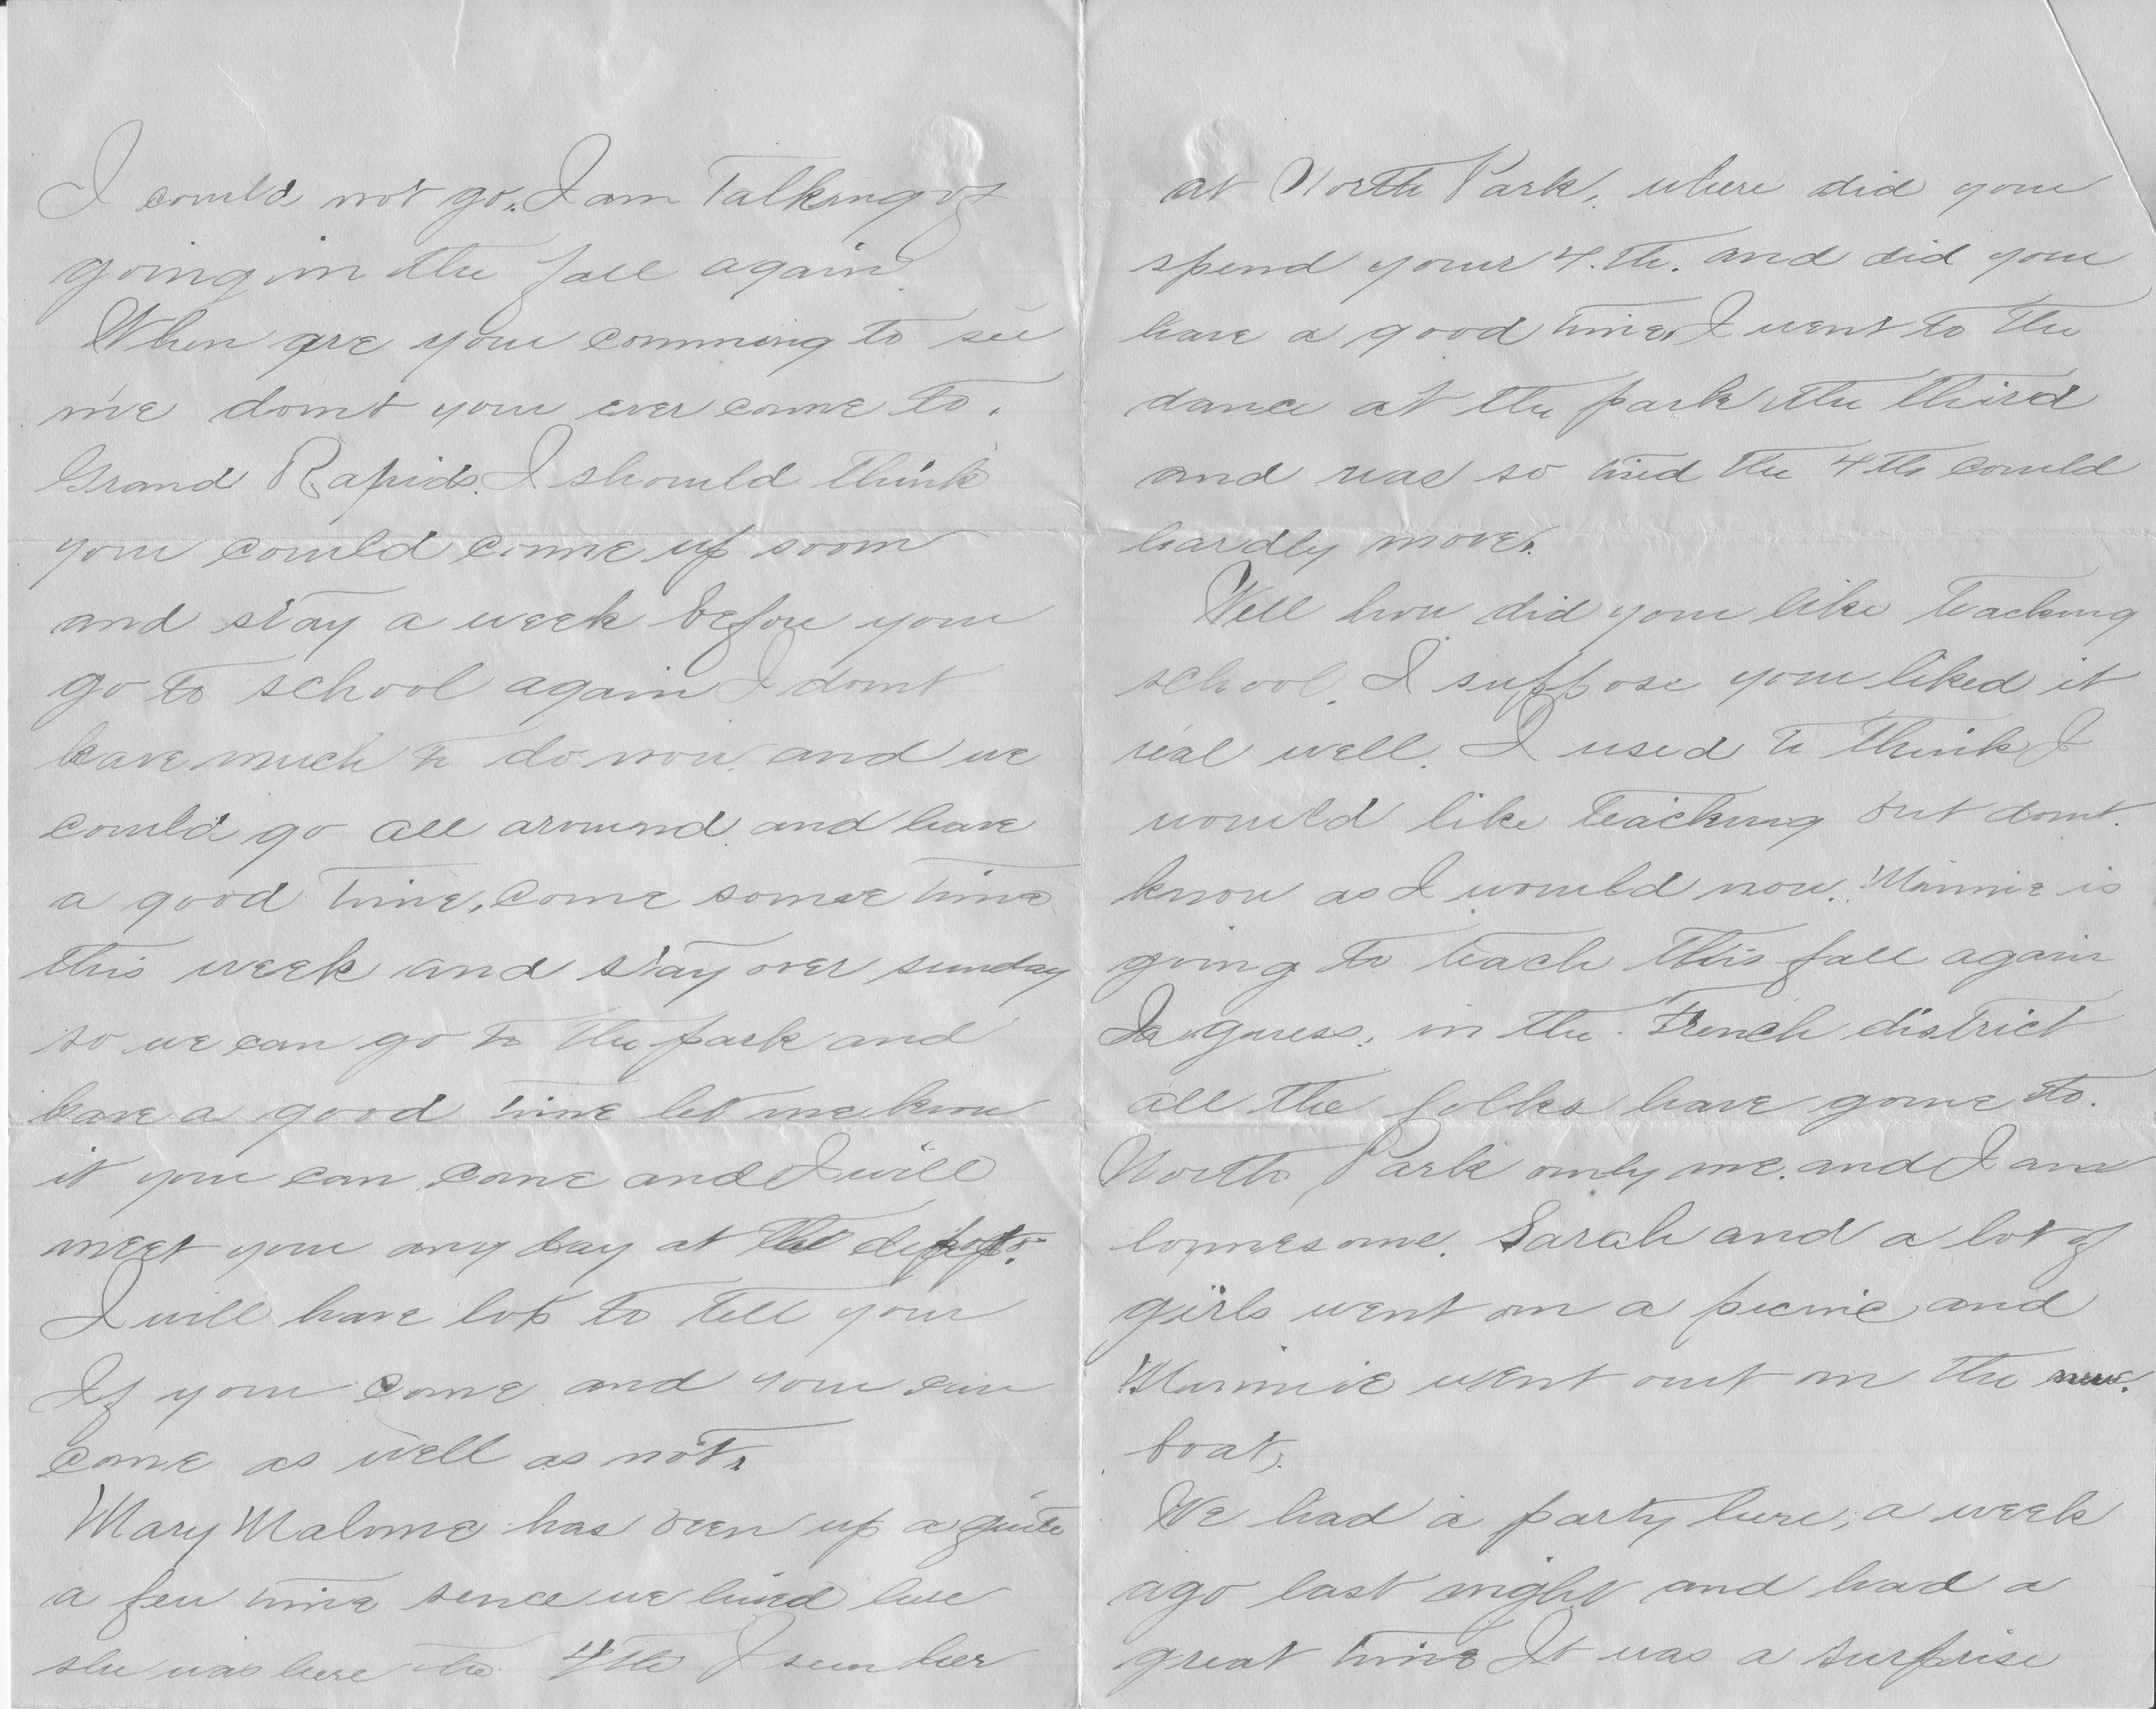 I could not go. I am talking of
going in the fall again
When are you comming to see
me dont you ever come to.
Grand Rapids. I should think
you could come up soon
and stay a week before you
go to school again I dont
have much to do now and we
could go all around and have
a good time, come some time
this week and stay over sunday
so we can go to the park and
have a good time let me know
it you can come and I will
meet you any day at the
I will have lots to tell you
If you come and you can
come as well as not.
Mary Malone has been up a quite
a few time sence we lived here
she was here the 4th I seen her
at North Park, where did you
spend your 4.th. and did you
have a good time, I went to the
dance at the park the third
and was so tired the 4th could
hardly move.
Well how did you like teaching
school. I suppose you liked it
real well. I used to think I
would like teaching but dont.
know as I would now. Minnie is
going to teach this fall again
I guess, in the French district
all the folks have gone to.
North Park only me. and I am
lonnesome. Sarah and a lot of
girls went on a picnic and
Minnie went out on the new.
boat.
We had a party here, a week
ago last night and had a
great time It was a surprise